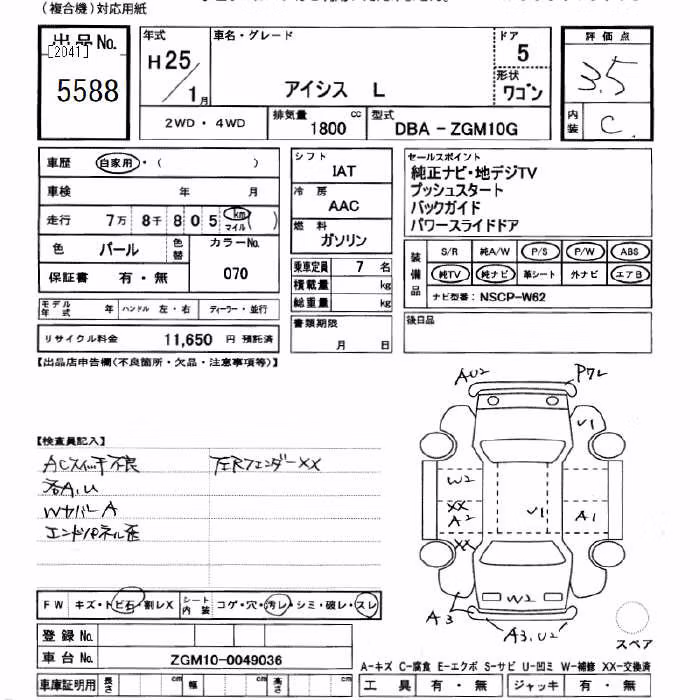 (複合機)対応用紙
出品No.
[2041]
5588
年式
H25/1月
車名・グレード
アイシス L
ドア
5
形状
ワゴン
評価点
3.5
内装
C
2WD・4WD
排気量
1800 cc
型式
DBA-ZGM10G
車歴 自家用・( )
車検 年 月
走行 7万 8千 8 0 5 km マイル ( )
色 パール 色替
カラーNo.
070
保証書 有・無
モデル年式 年 ハンドル 左・右 ディーラー・並行
リサイクル料金 11,650 円 預託済
シフト
IAT
冷房
AAC
燃料
ガソリン
乗車定員 7 名
積載量 kg
総重量 kg
書類期限
月 日
セールスポイント
純正ナビ・地デジTV
プッシュスタート
バックガイド
パワースライドドア
装備品
S/R 純A/W P/S P/W ABS
純TV 純ナビ 革シート 外ナビ エアB
ナビ型番: NSCP-W62
後日品
【出品店申告欄(不良箇所・欠品・注意事項等)】
【検査員記入】
ACスイッチ不良
左Rフェンダーxx
各A.U
WカバーA
エンドパネル歪
AU2
P72
U1
W2
XX
A2
U1
A1
XX
W2
A3
A3,U2
スペア
FW キズ・トビ石・割レX
シート内装 コゲ・穴・汚レ・シミ・破レ・スレ
登録No.
車台No. ZGM10-0049036
車庫証明用 長さ cm 幅 cm 高さ cm
A-キズ C-腐食 E-エクボ S-サビ U-凹ミ W-補修 XX-交換済
工具 有・無 ジャッキ 有・無